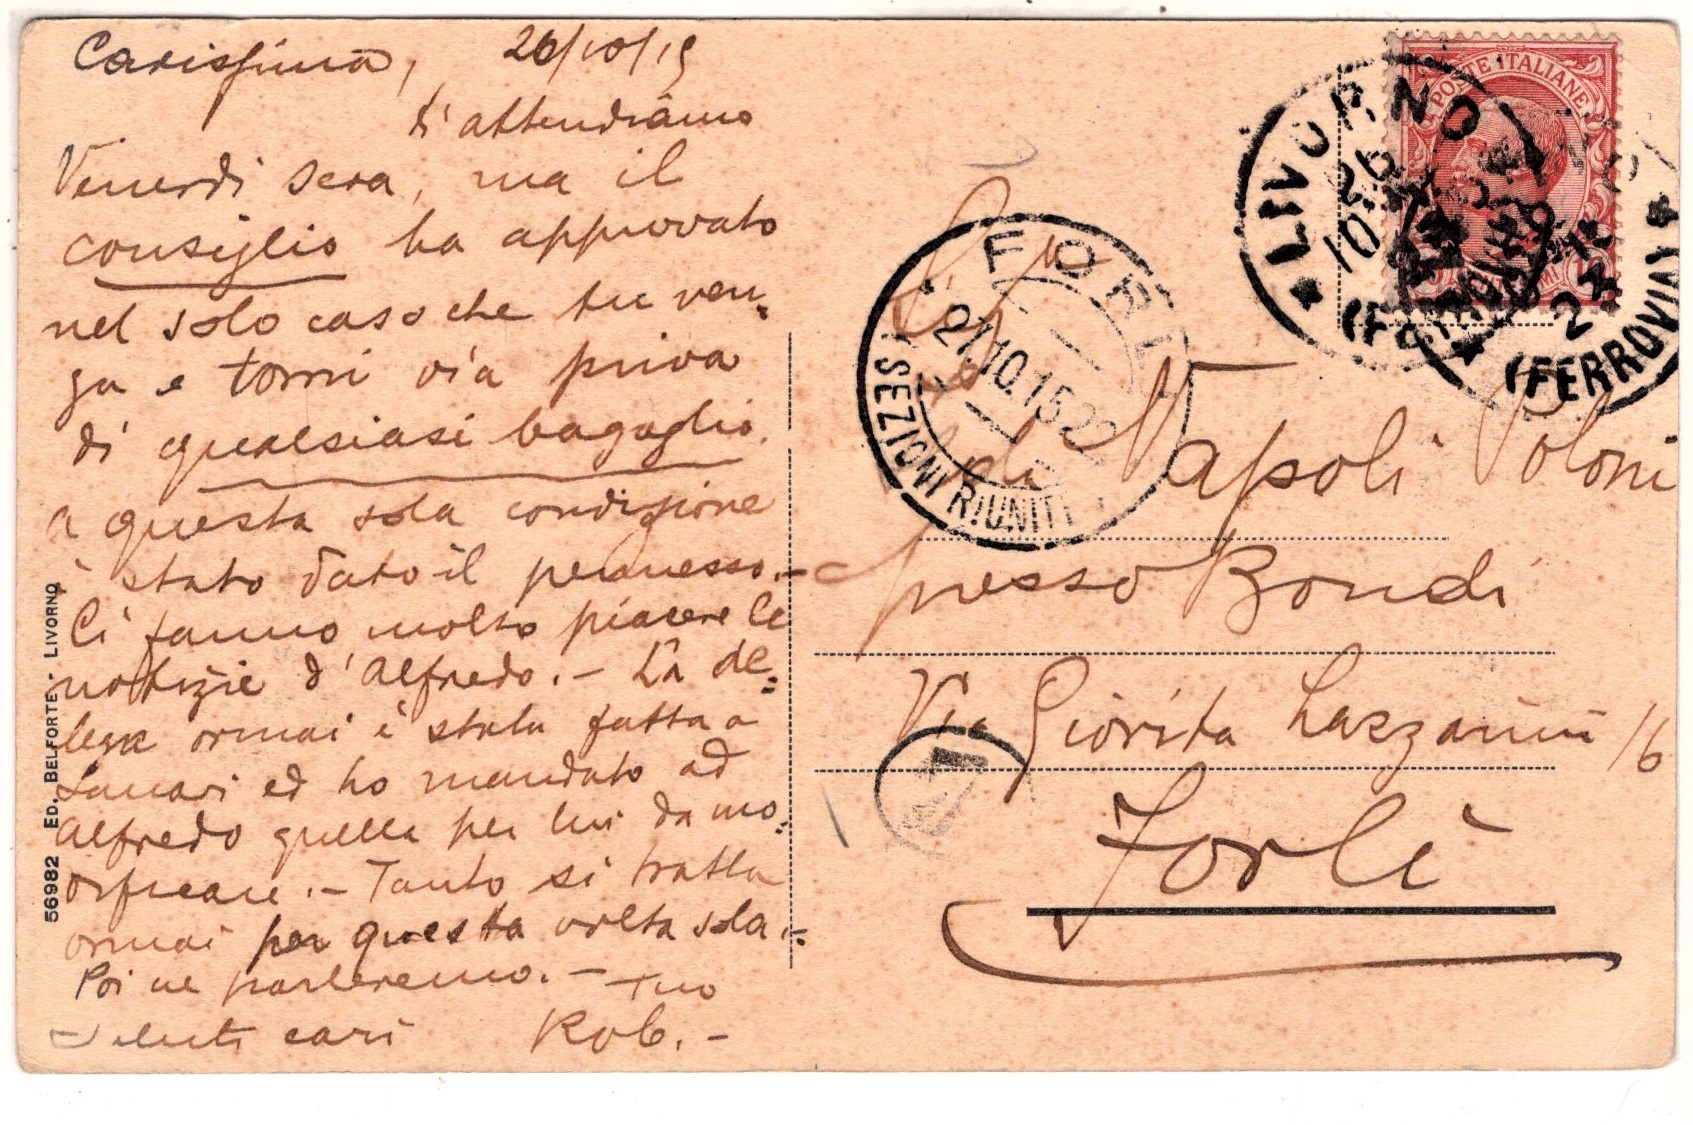 Carissima, 26/10/15
ti attendiamo
Venerdì sera, ma il
consiglio ha approvato
nel solo caso che tu ven=
ga e torni via priva
di qualsiasi bagaglio.
a questa sola condizione
è stato dato il permesso.-
Ci fanno molto piacere le
notizie d'Alfredo.- La de=
lega ormai è stata fatta a
ed ho mandato ad
Alfredo quella per lui da mo=
dificare.- Tanto si tratta
ormai per questa volta sola.-
Poi ne parleremo.- Tuo
Saluti cari Rob.-
56982 ED. BELFORTE - LIVORNO
POSTE ITALIANE
LIVORNO
26
10
(FERROVIA)
FORLÌ
27.10.15.22
(SEZIONI RIUNITE)
Napoli Poloni
presso Bondi
Via Giorita Lazzarini 16
Forlì